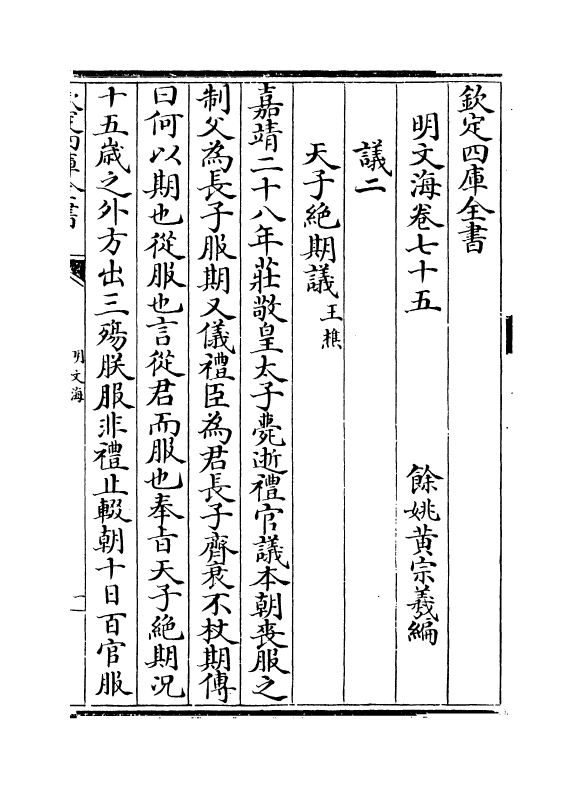 欽定四庫全書
明文海卷七十五
餘姚黃宗羲編
議二
天子絶期議王樵
嘉靖二十八年莊敬皇太子薨逝禮官議本朝喪服之
制父為長子服期又儀禮臣為君長子齊衰不杖期傳
曰何以期也從服也言從君而服也奉旨天子絶期况
十五歲之外方出三殤朕服非禮止輟朝十日百官服
欽定四庫全書
明文海
一